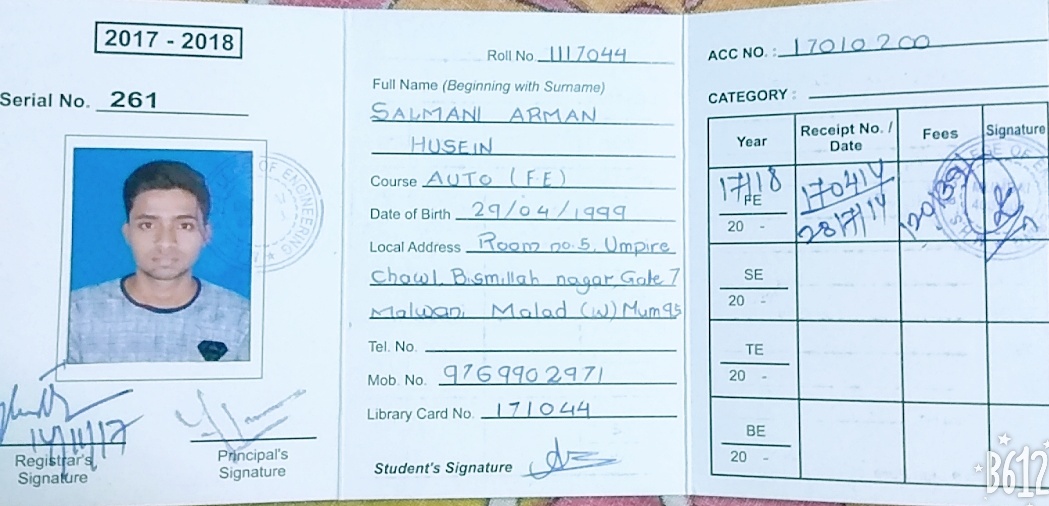 2017 - 2018
Serial No. 261
OF ENGINEERING
14/11/17
Registrar's Signature
Principal's Signature
Roll No. 1117044
Full Name (Beginning with Surname)
SALMANI ARMAN
HUSEIN
Course AUTO (F.E)
Date of Birth 29/04/1999
Local Address Room no.5, Umpire
Chawl, Bismillah nagar, Gate 7
Malwani Malad (W) Mum 95
Tel. No.
Mob. No. 9769902971
Library Card No. 171044
Student's Signature
ACC NO. : 17010200
CATEGORY :
Year Receipt No. / Date Fees Signature
17/18 FE 20 -
SE
20 -
TE
20 -
BE
20 -
B612